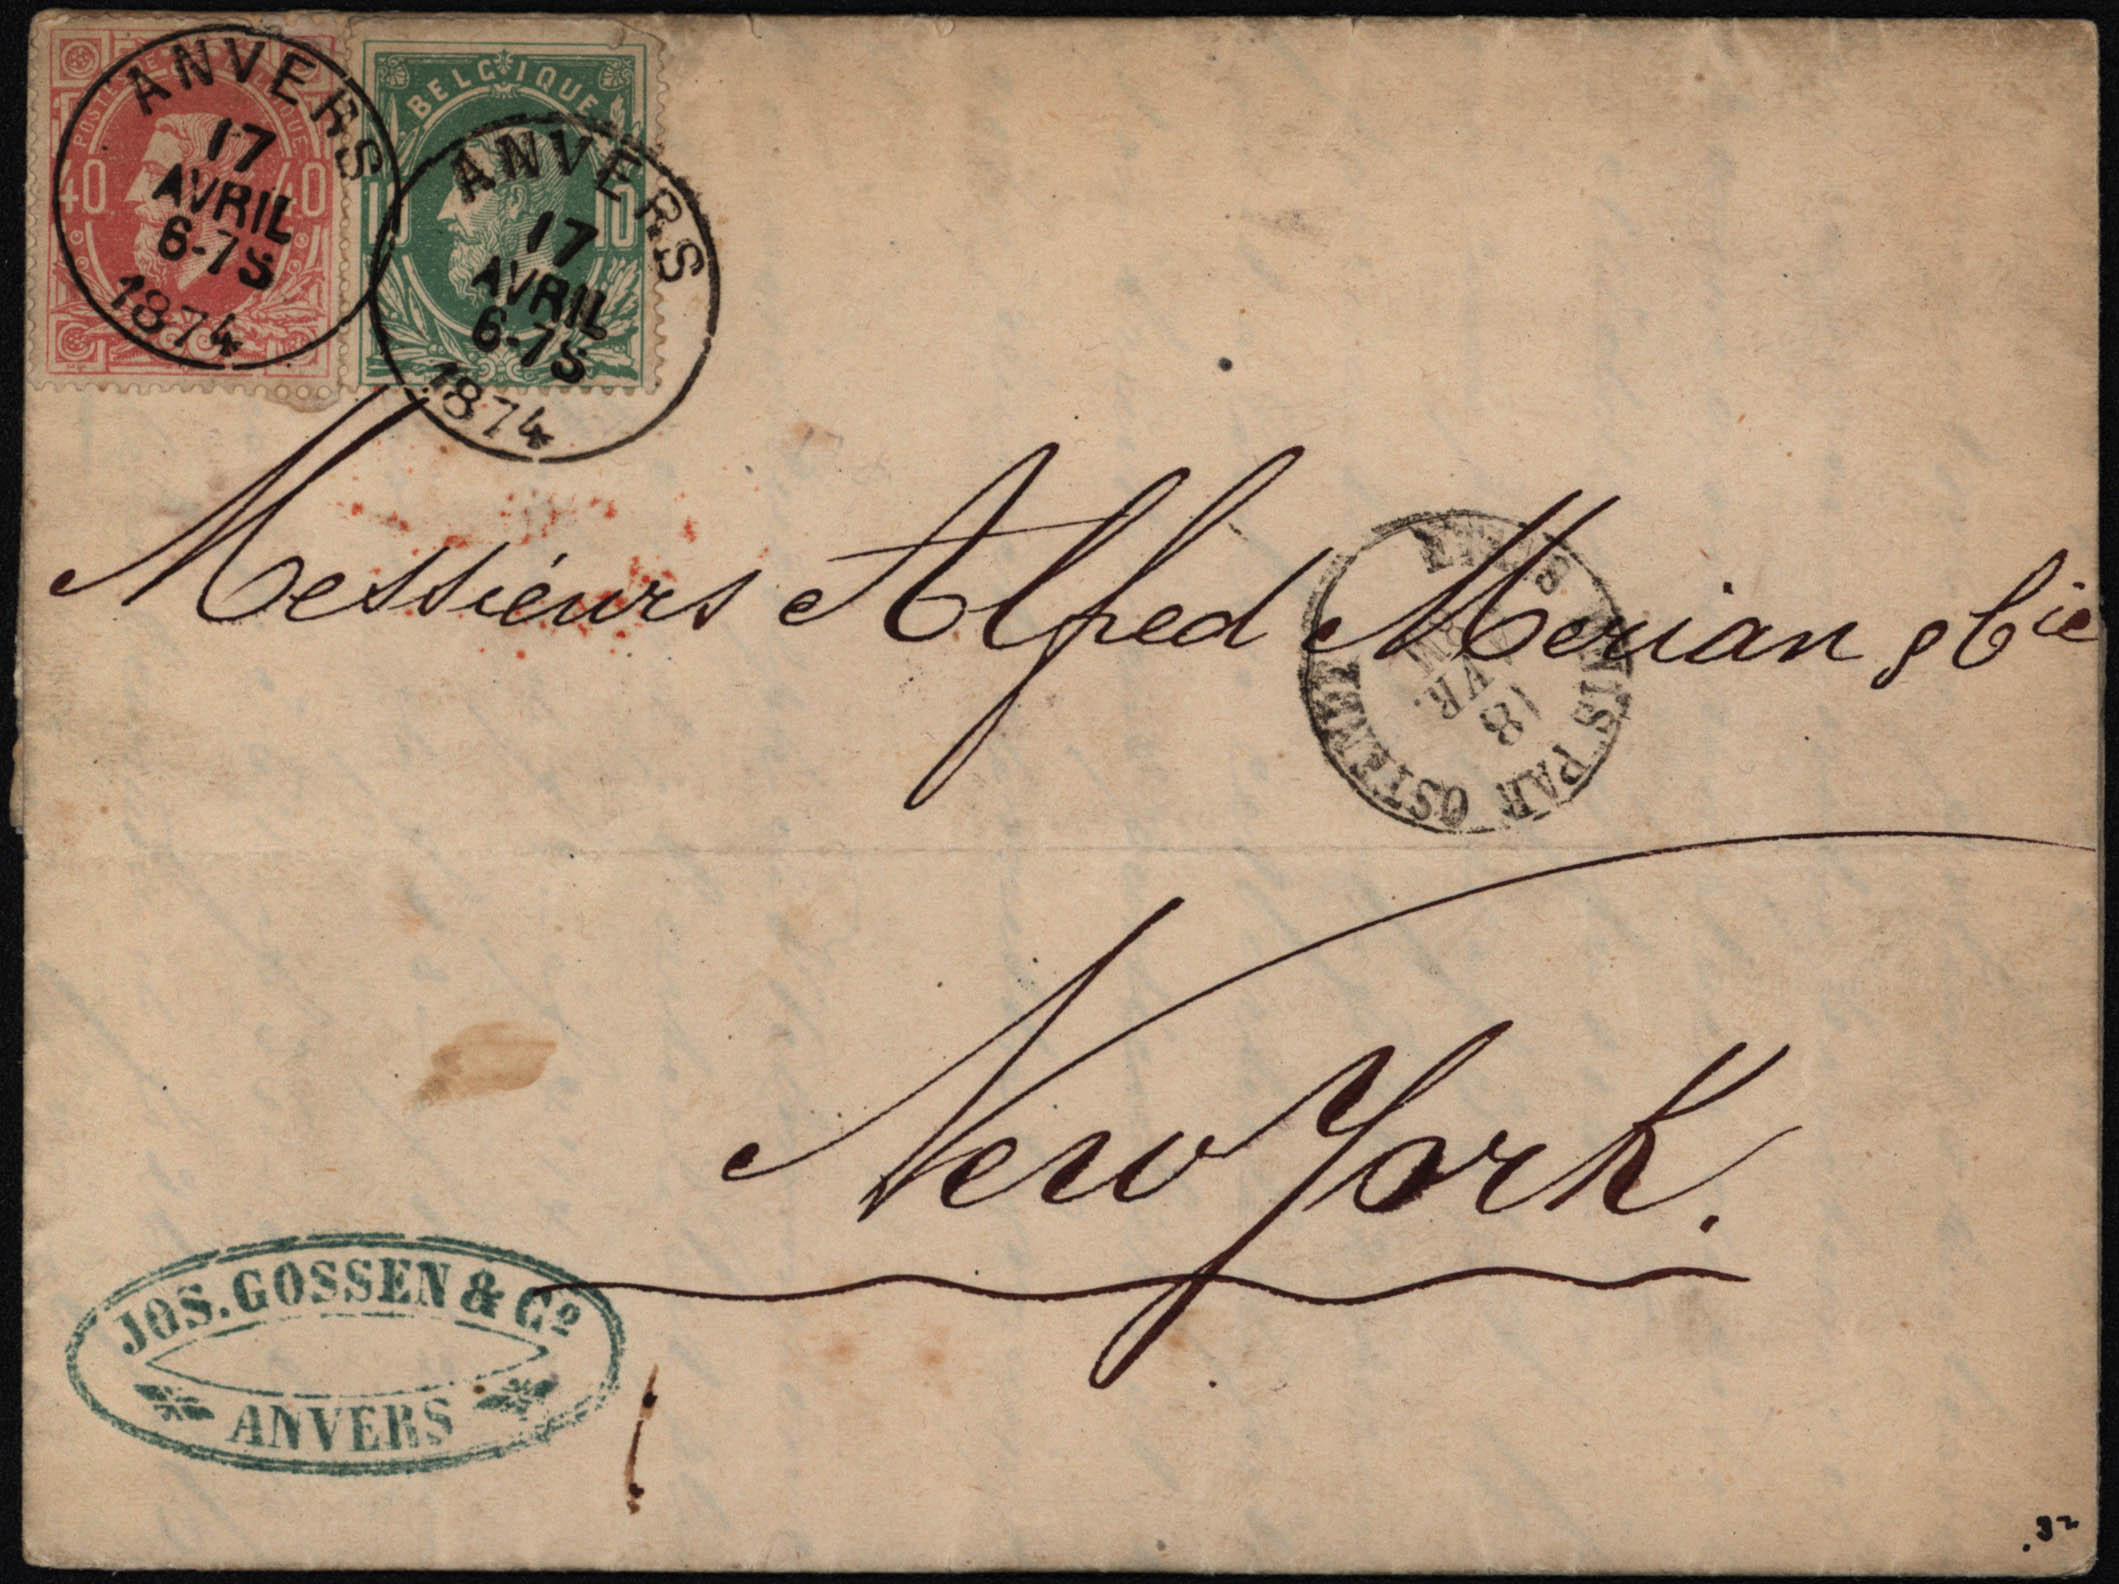 POSTES
40 40
BELGIQUE
10 10
ANVERS
17
AVRIL
6-7S
1874
ANVERS
17
AVRIL
6-7S
1874
Messiéurs Alfred Merian & Cie
PAR OSTENDE
18
AVR.
New York.
JOS. GOSSEN & Cº
ANVERS